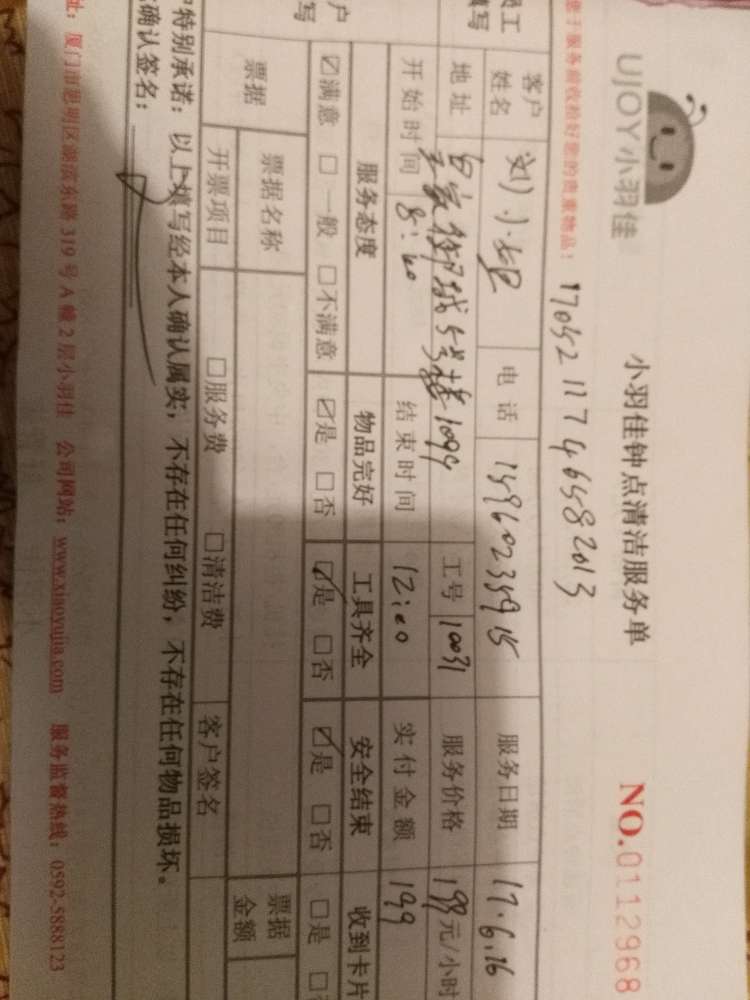 UJOY小羽佳
小羽佳钟点清洁服务单
NO.0112968
您于服务前收拾好您的贵重物品：
1705211746582013
员工
填写
客户姓名 刘小姐 电话 15960235915 服务日期 17.6.16
地址 御城 号楼1099 工号 10031 服务价格 199元/小时
开始时间 8:00 结束时间 12:00 实付金额 199
户
写
服务态度 物品完好 工具齐全 安全结束 收到卡片
☑满意 □一般 □不满意 ☑是 □否 ☑是 □否 ☑是 □否 □是
票据 票据名称 票据金额
开票项目 □服务费 □清洁费 客户签名
特别承诺：以上填写经本人确认属实，不存在任何纠纷，不存在任何物品损坏。
确认签名：
址：厦门市思明区湖滨东路319号A幢2层小羽佳 公司网站：www.xiaoyujia.com 服务监督热线：0592-5888123